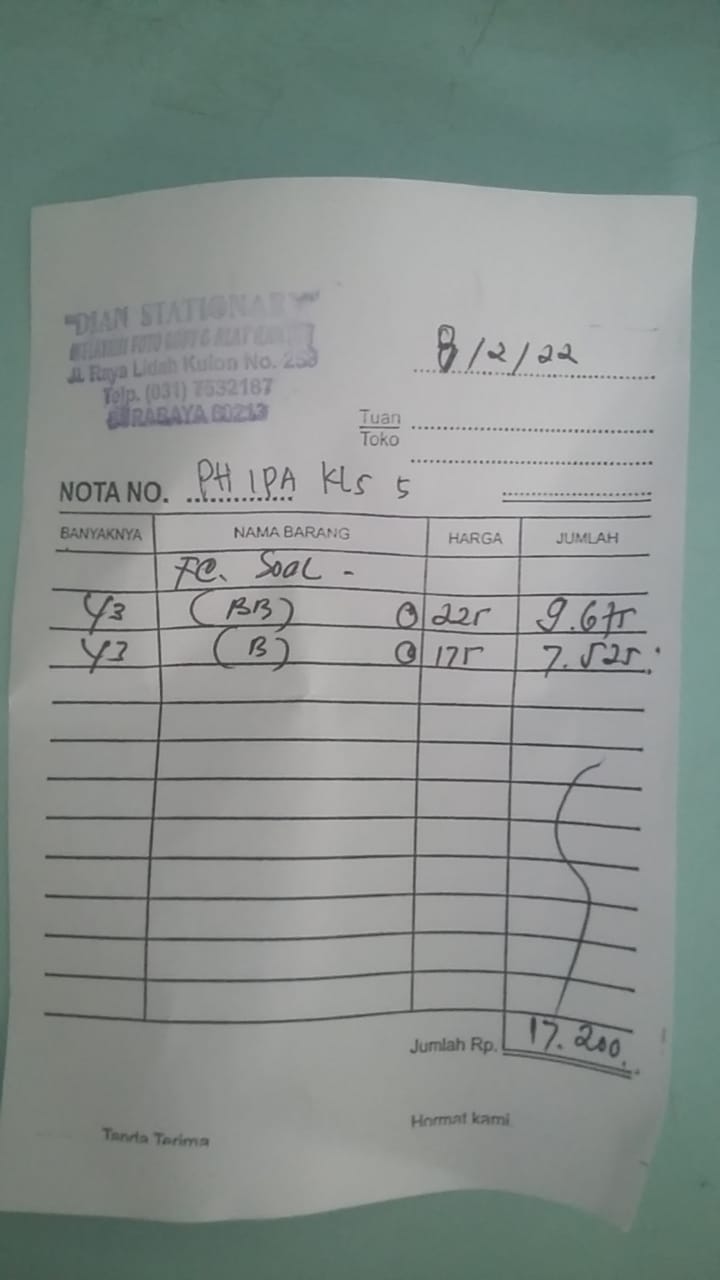 "DIAN STATIONARY"
Jl. Raya Lidah Kulon No. 253
Telp. (031) 7532187
SURABAYA 60213
8/2/22
Tuan
Toko
NOTA NO. PH IPA KLS 5
BANYAKNYA NAMA BARANG HARGA JUMLAH
FC. Soal -
43 (BB) @ 225 9.675
43 (B) @ 175 7.525
Jumlah Rp. 17.200
Tanda Terima Hormat kami